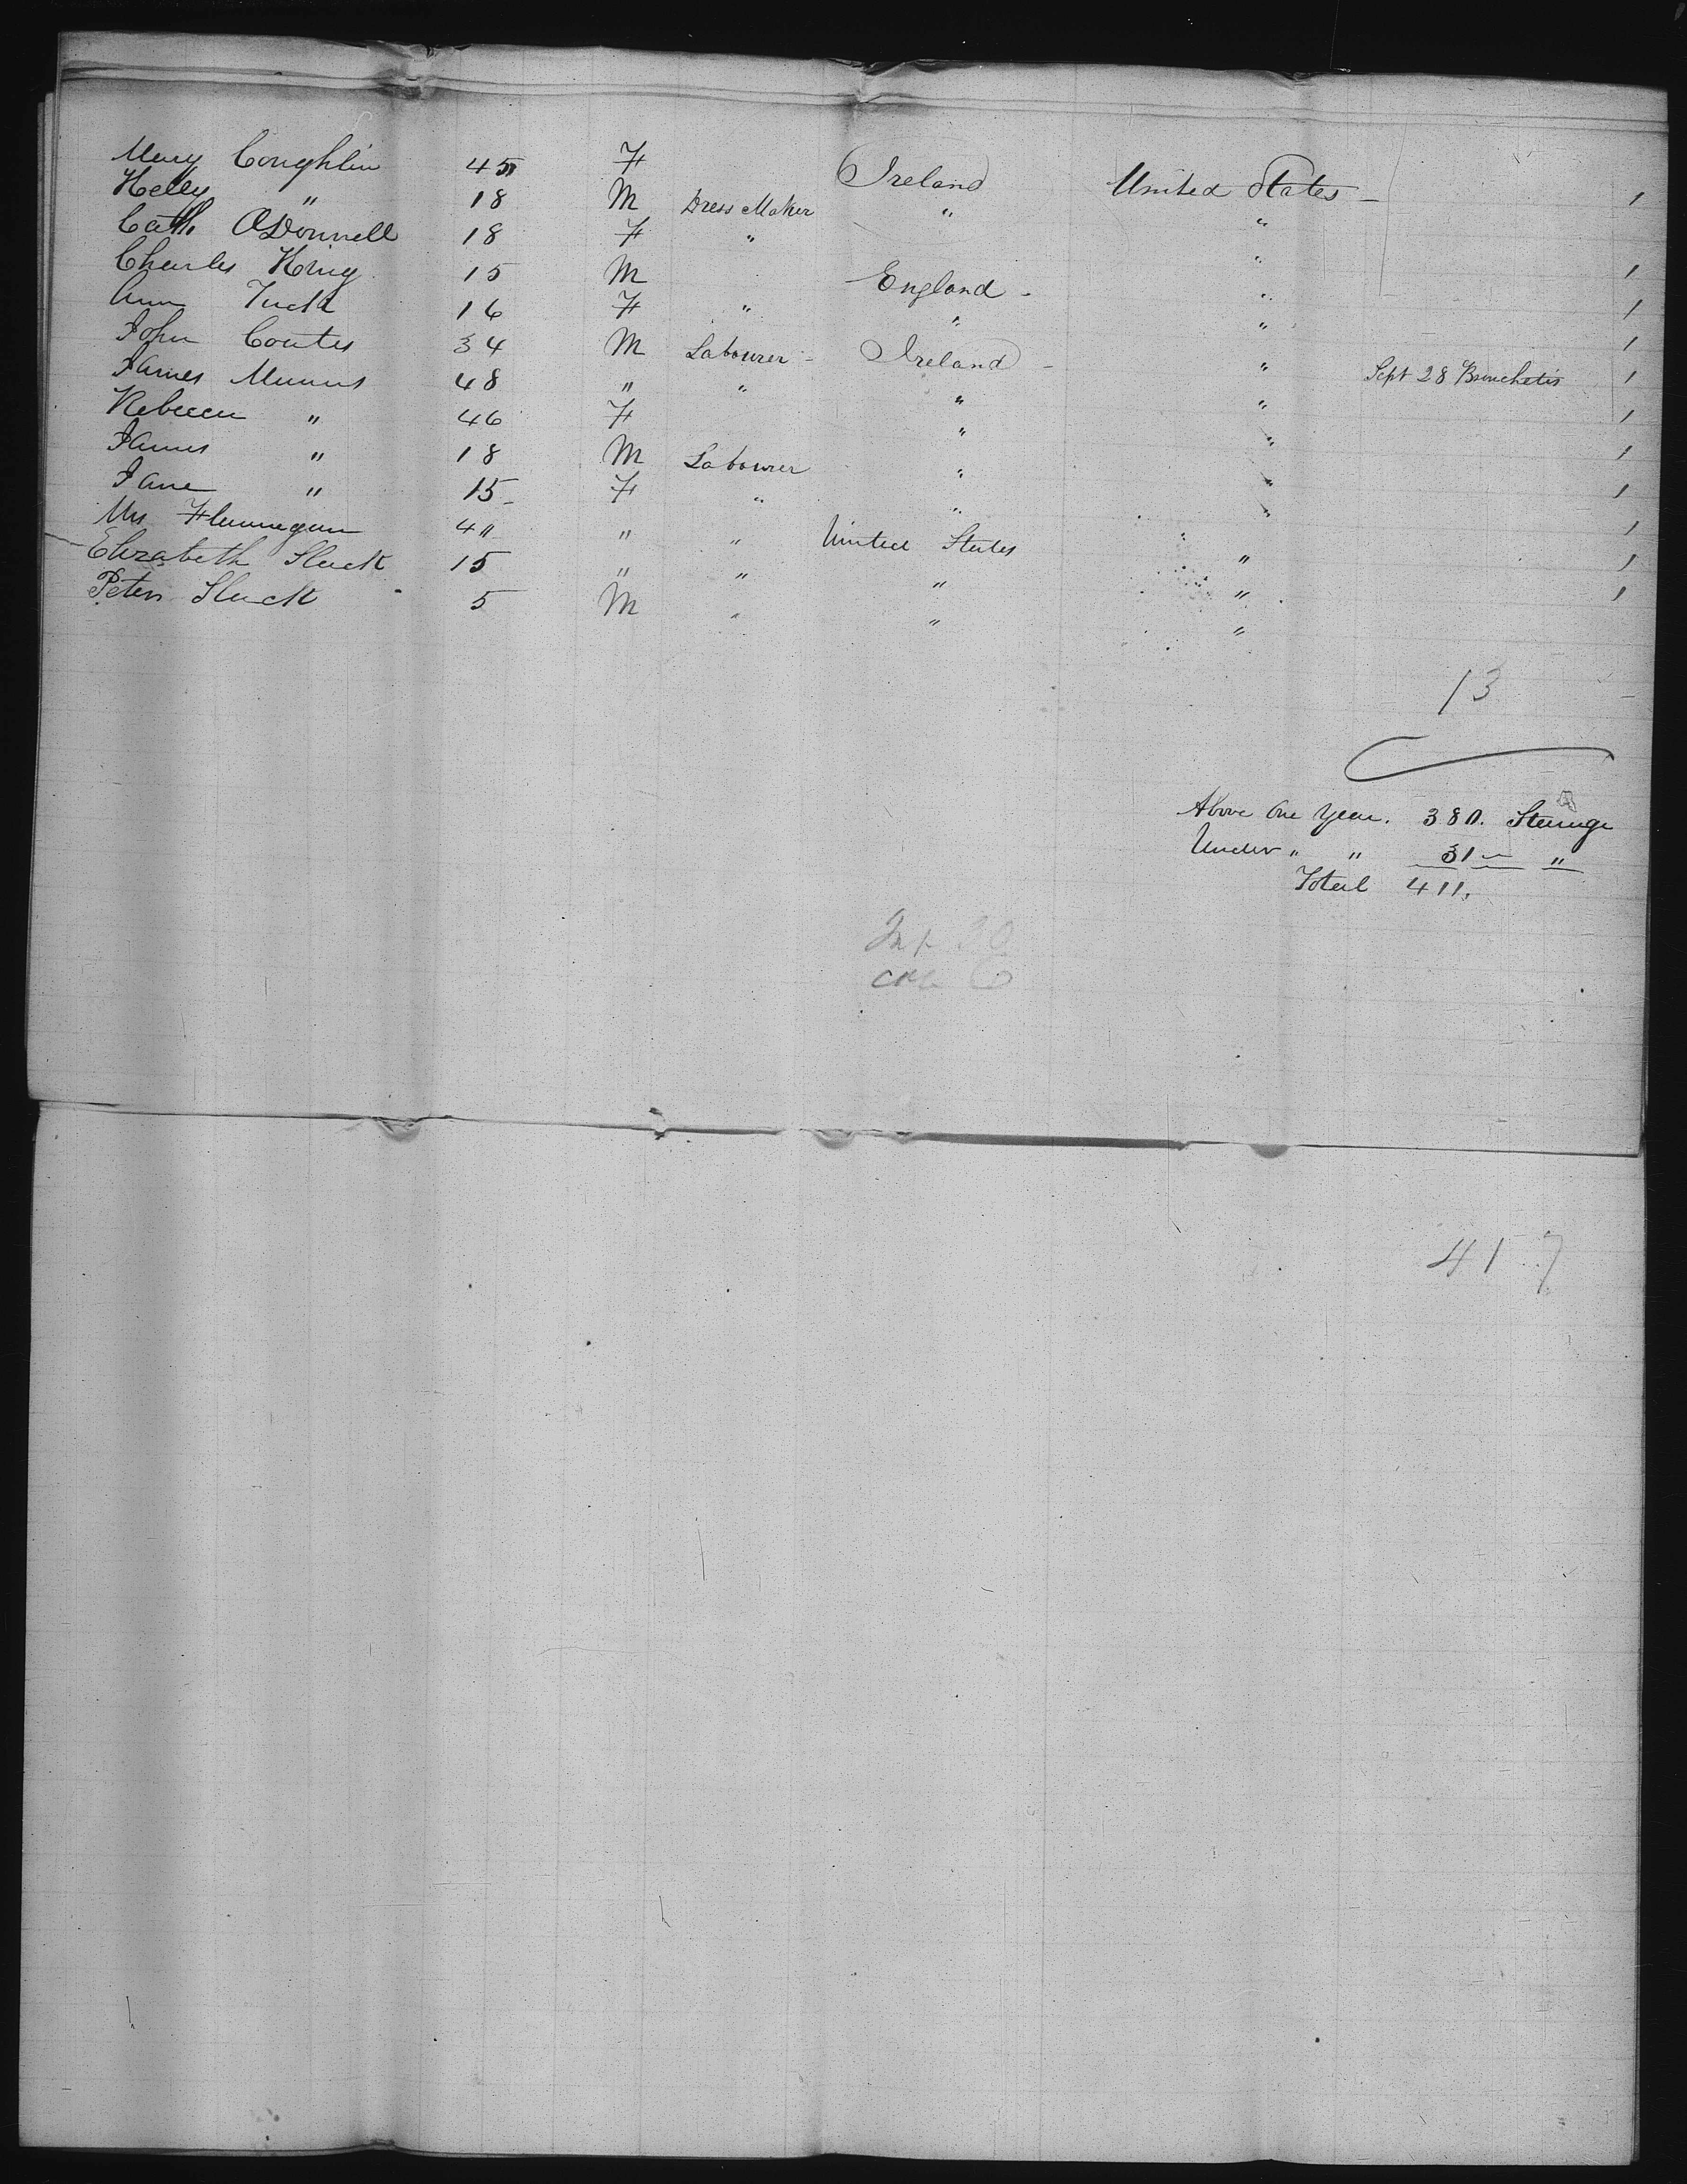 Mary Coughlin 45 F Ireland United States -
Kelly " 18 M Dress Maker " " 1
Cath ODonnell 18 F " "
Charles King 15 M England - " 1
Ann Tuck 16 F " " " 1
John Coutes 34 M Labourer - Ireland - " 1
James Munns 48 " " " " Sept 28 Bronchetis 1
Rebecca " 46 F " " 1
James " 18 M Labourer " " 1
Jane " 15 F " " " 1
Mrs Flannegan 40 " " United States " 1
Elizabeth Sluck 15 " " " " 1
Peter Sluck 5 M " " " 1
13
Above One Year. 380. Steerage
Under " " 31 "
Total 411.
417